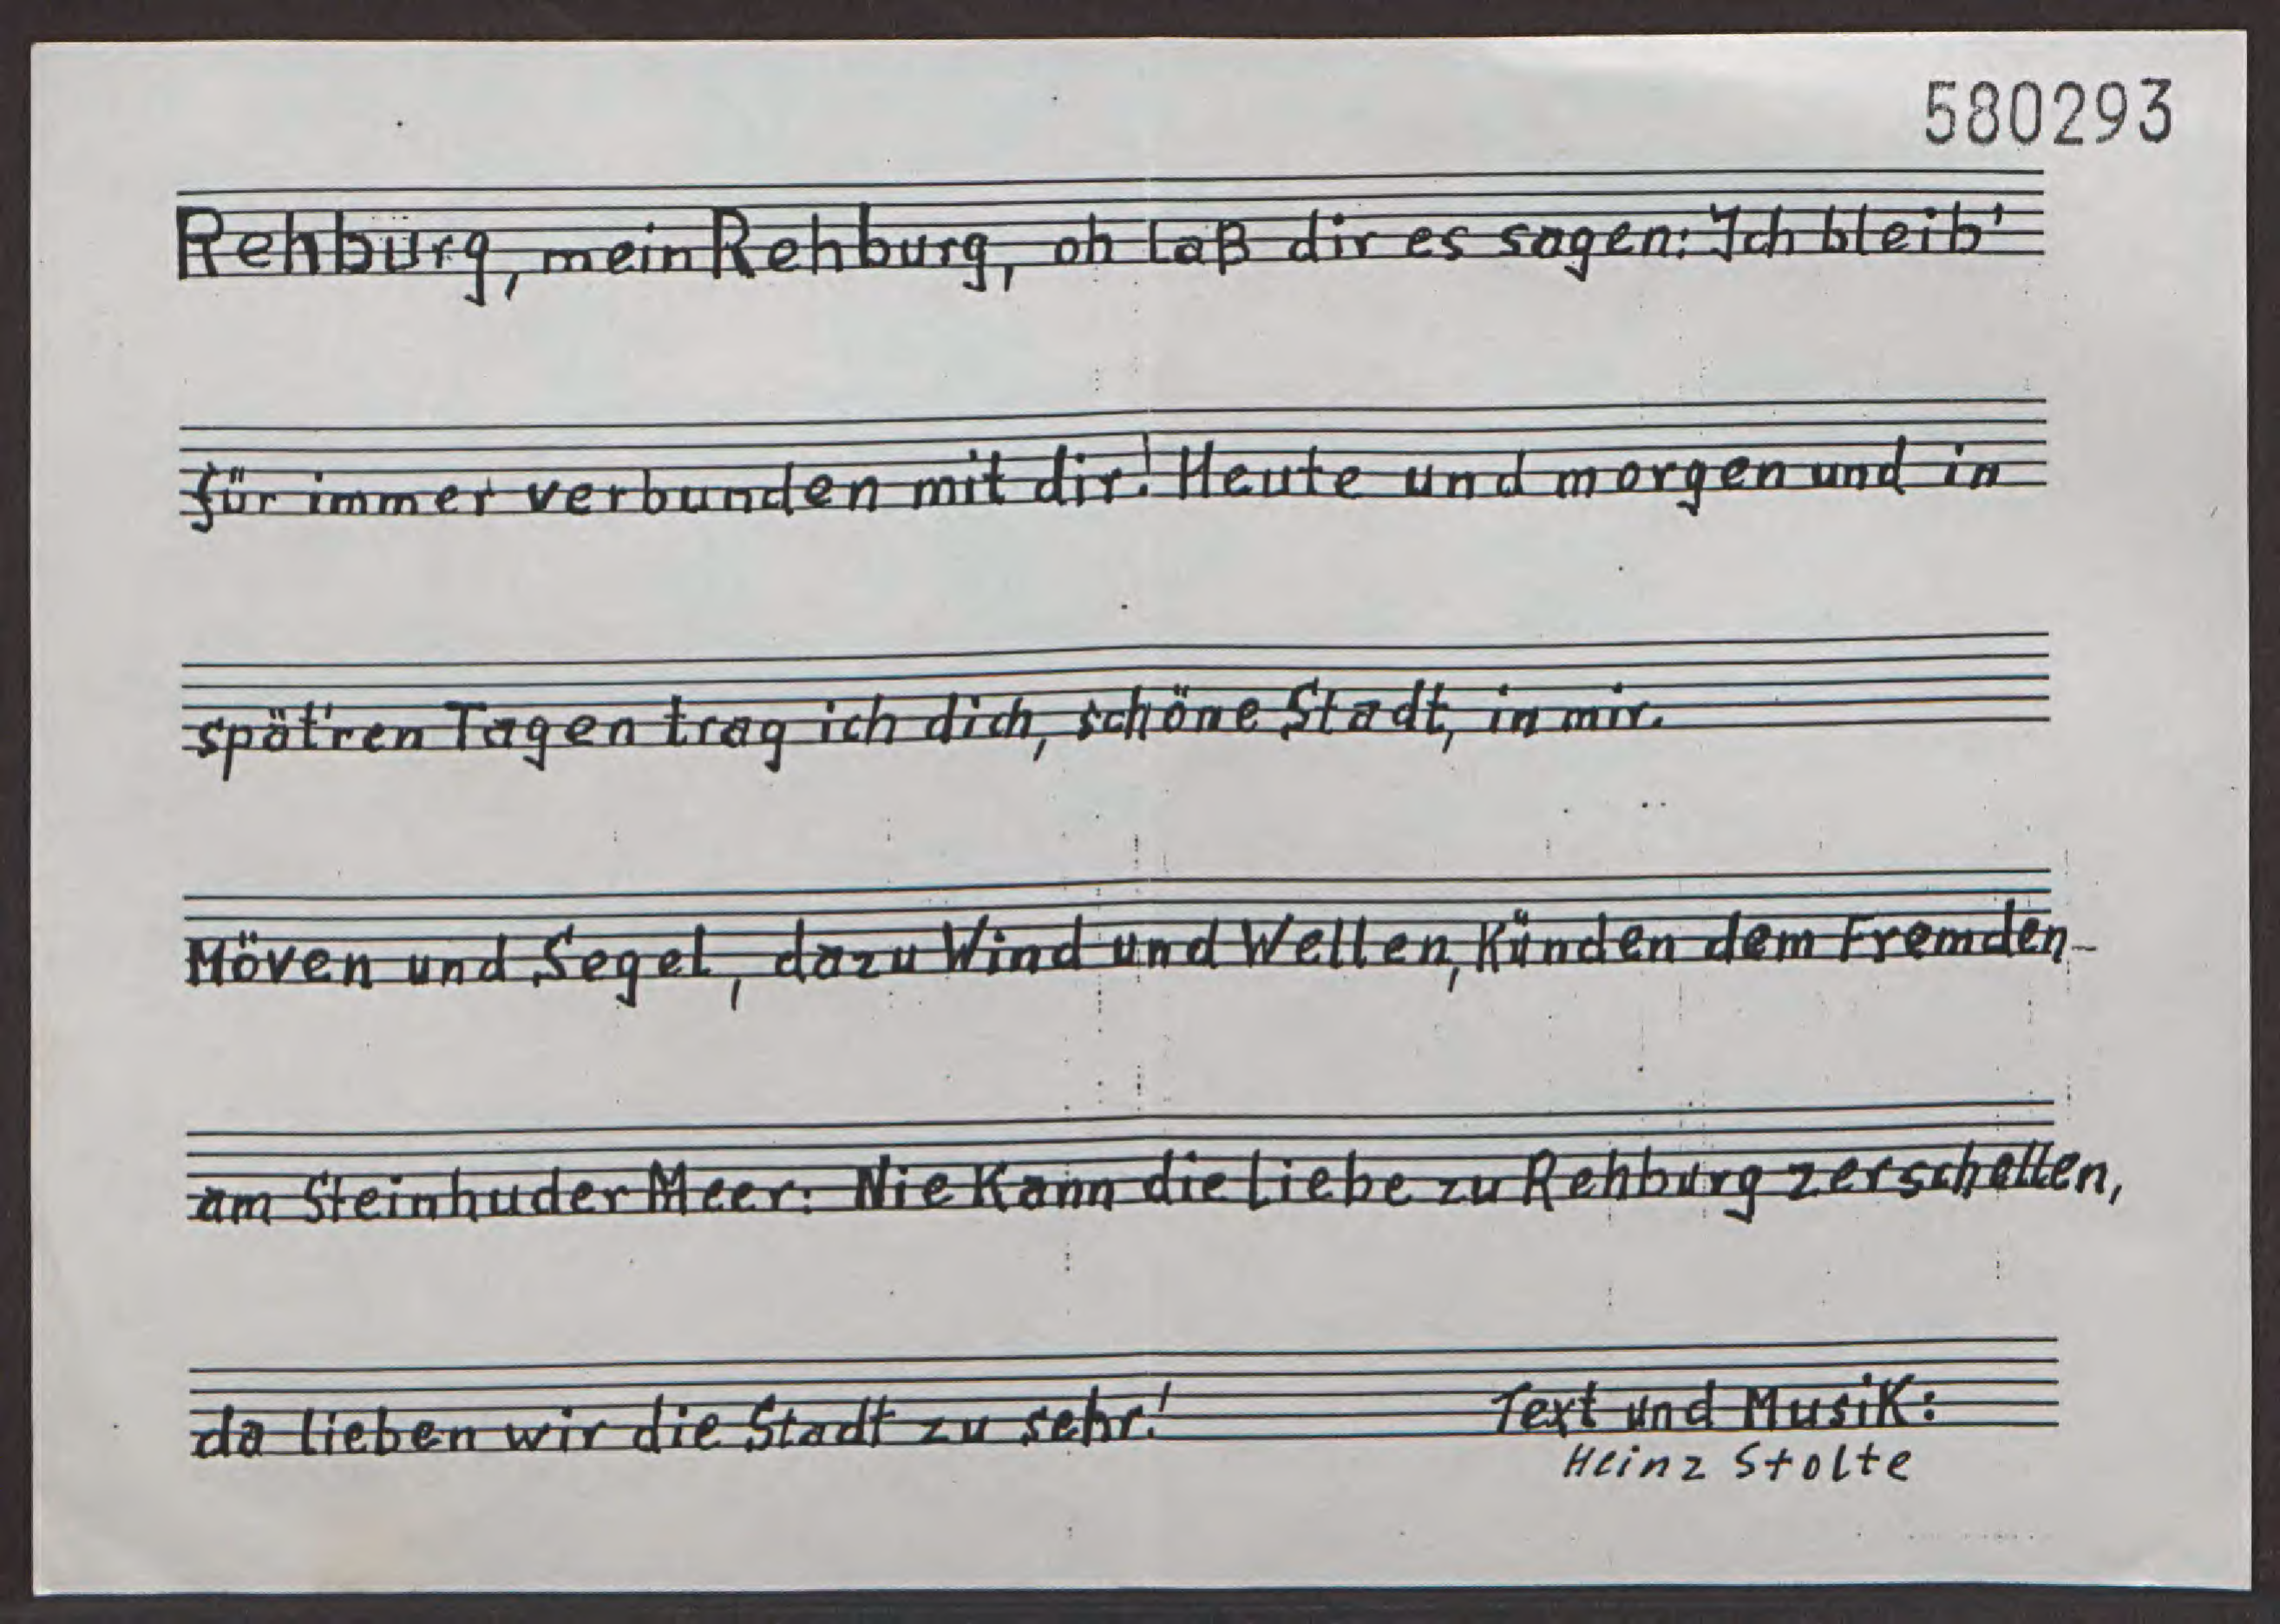 580293
Rehburg, mein Rehburg, oh laß dir es sagen: Ich bleib'
für immer verbunden mit dir! Heute und morgen und in
spät'ren Tagen trag ich dich, schöne Stadt, in mir.
Möven und Segel, dazu Wind und Wellen, Künden dem Fremden
am Steinhuder Meer: Nie Kann die Liebe zu Rehburg zerschellen,
da lieben wir die Stadt zu sehr!
Text und Musik:
Heinz Stolte